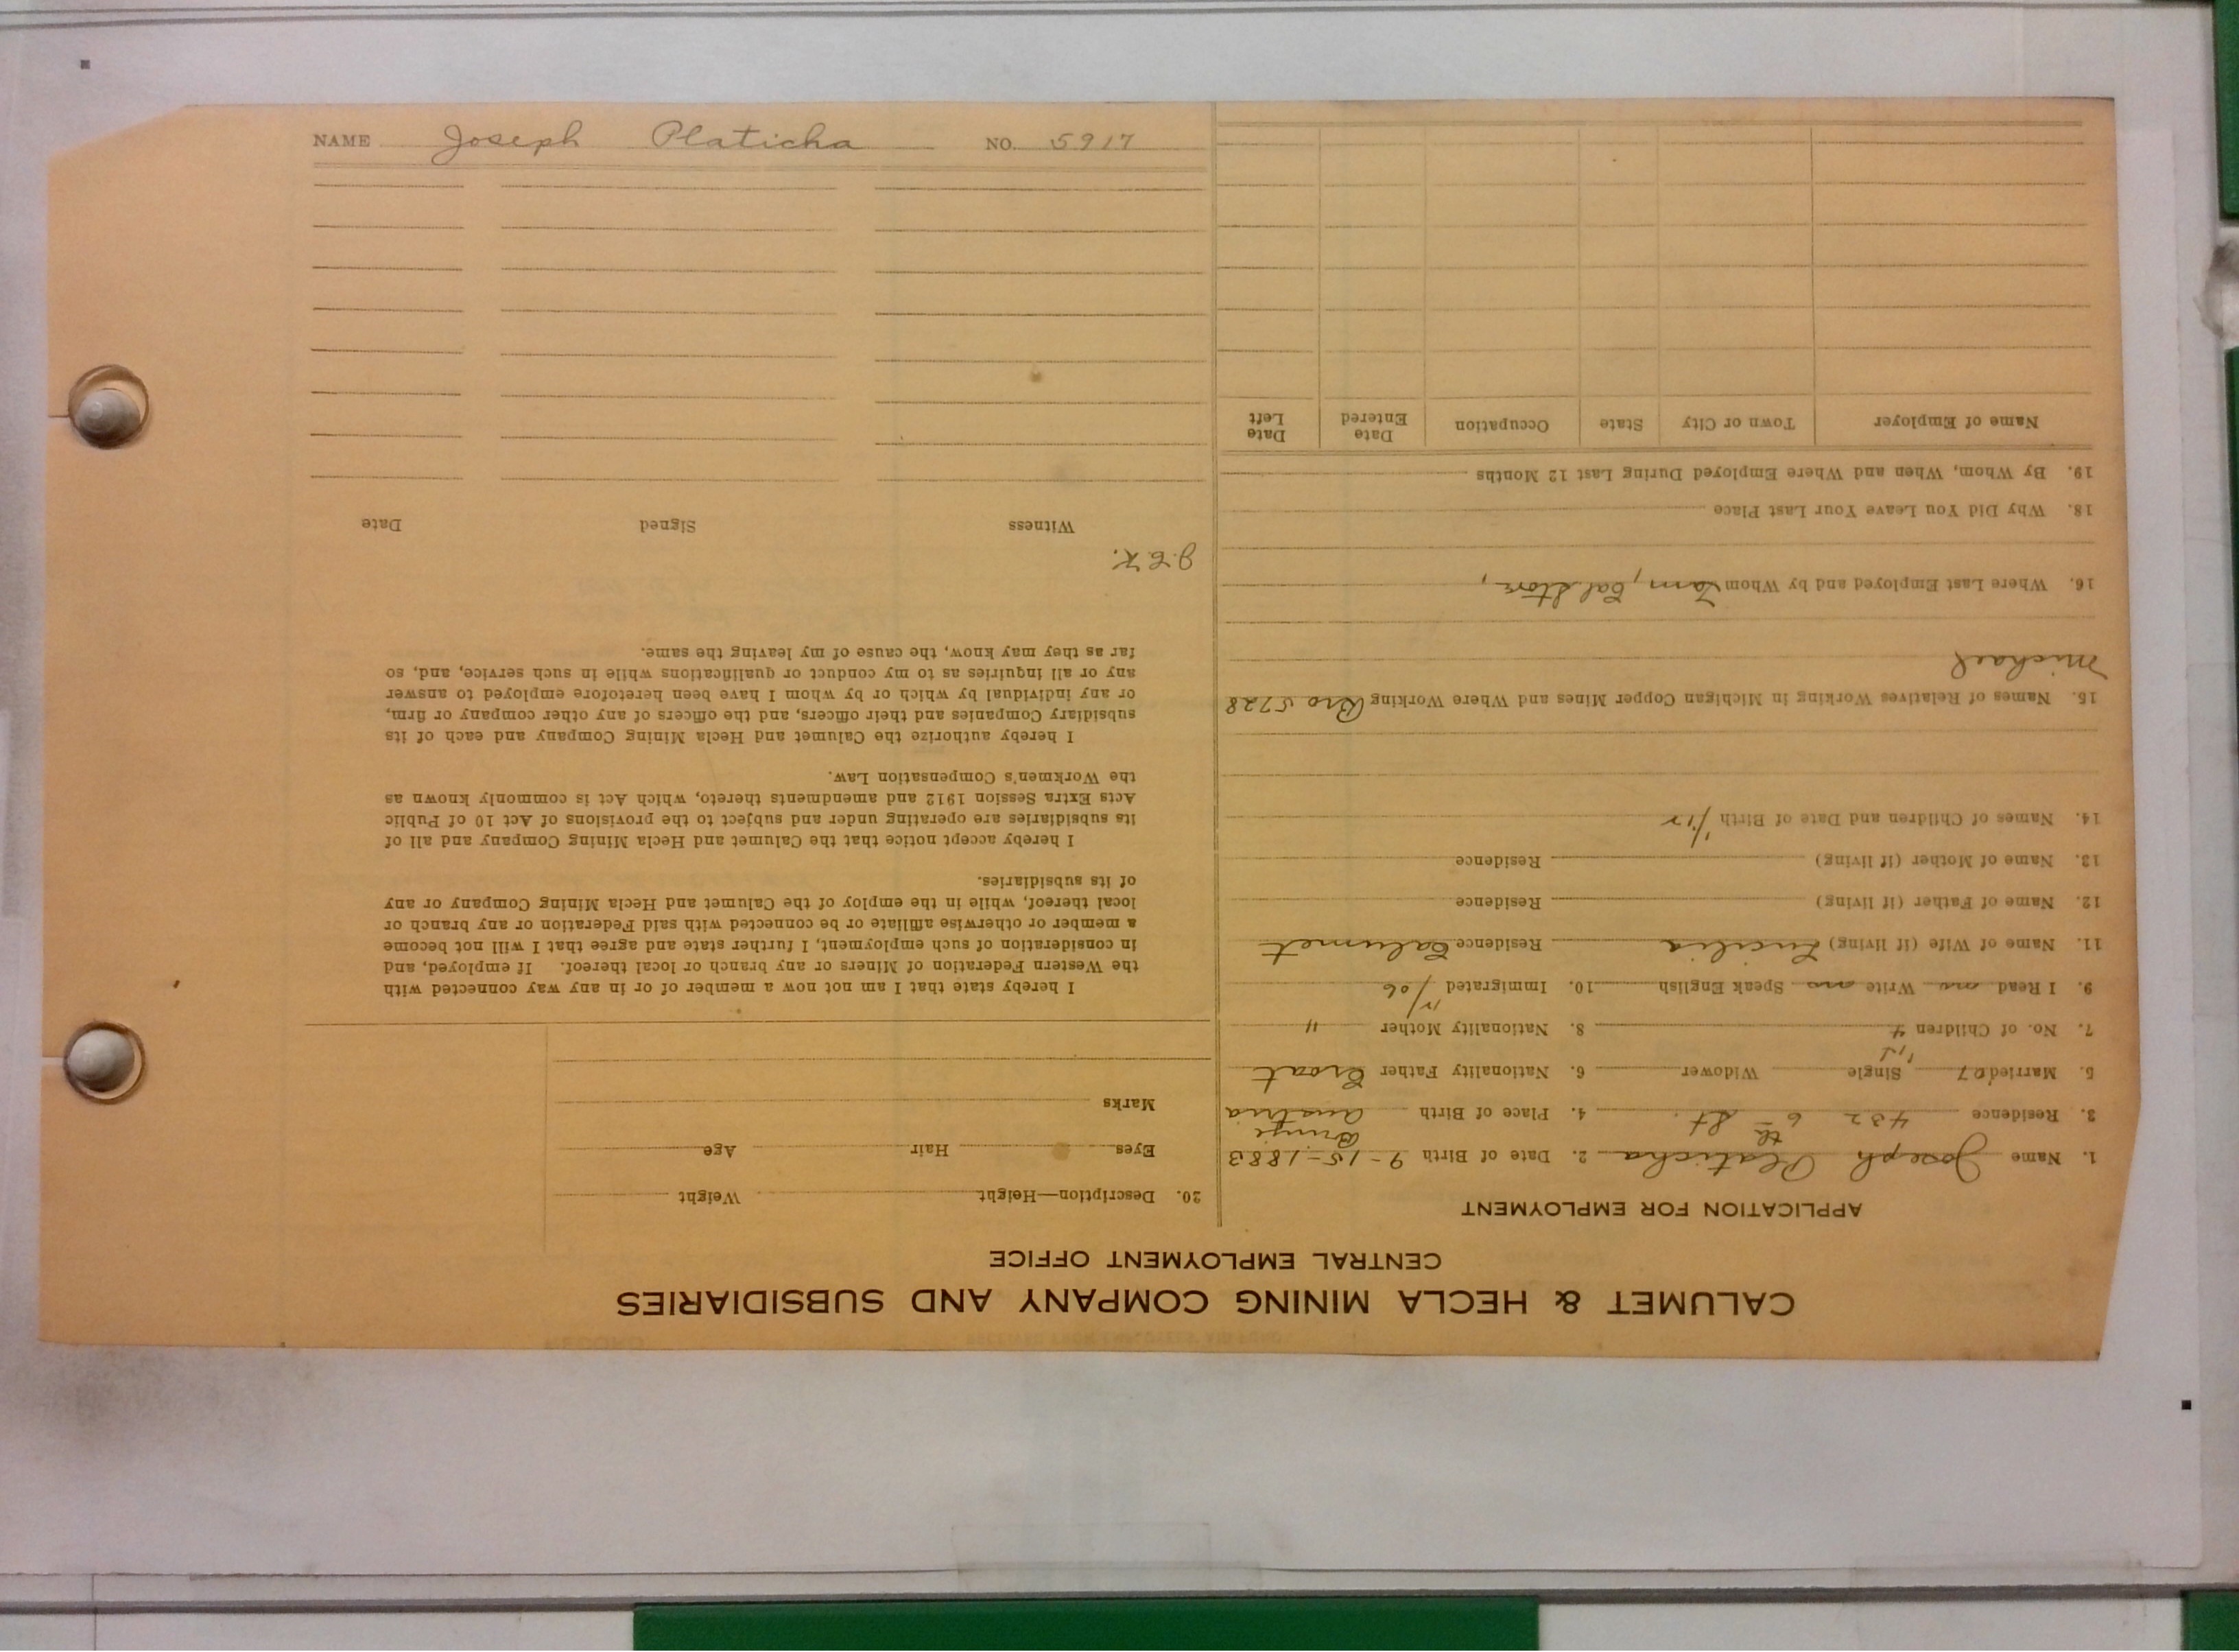 NAME Joseph Platicha NO. 5917
CALUMET & HECLA MINING COMPANY AND SUBSIDIARIES
CENTRAL EMPLOYMENT OFFICE
APPLICATION FOR EMPLOYMENT
1. Name Joseph Platicha 2. Date of Birth 9-15-1883
3. Residence 432 6th St. 4. Place of Birth Austria
5. Married 07 Single Widower 6. Nationality Father Croat
7. No. of Children 4 8. Nationality Mother "
9. I Read Write Speak English 10. Immigrated /06
11. Name of Wife (if living) Lucilia Residence Calumet
12. Name of Father (if living) Residence
13. Name of Mother (if living) Residence
14. Names of Children and Date of Birth
15. Names of Relatives Working in Michigan Copper Mines and Where Working Bro 5728
Michael
16. Where Last Employed and by Whom Tam, Cal Store,
18. Why Did You Leave Your Last Place
19. By Whom, When and Where Employed During Last 12 Months
Name of Employer Town or City State Occupation Date Entered Date Left
20. Description—Height Weight
Eyes Hair Age
Marks
I hereby state that I am not now a member of or in any way connected with
the Western Federation of Miners or any branch or local thereof. If employed, and
in consideration of such employment, I further state and agree that I will not become
a member or otherwise affiliate or be connected with said Federation or any branch or
local thereof, while in the employ of the Calumet and Hecla Mining Company or any
of its subsidiaries.
I hereby accept notice that the Calumet and Hecla Mining Company and all of
its subsidiaries are operating under and subject to the provisions of Act 10 of Public
Acts Extra Session 1912 and amendments thereto, which Act is commonly known as
the Workmen's Compensation Law.
I hereby authorize the Calumet and Hecla Mining Company and each of its
subsidiary Companies and their officers, and the officers of any other company or firm,
or any individual by which or by whom I have been heretofore employed to answer
any or all inquiries as to my conduct or qualifications while in such service, and, so
far as they may know, the cause of my leaving the same.
Witness Signed Date